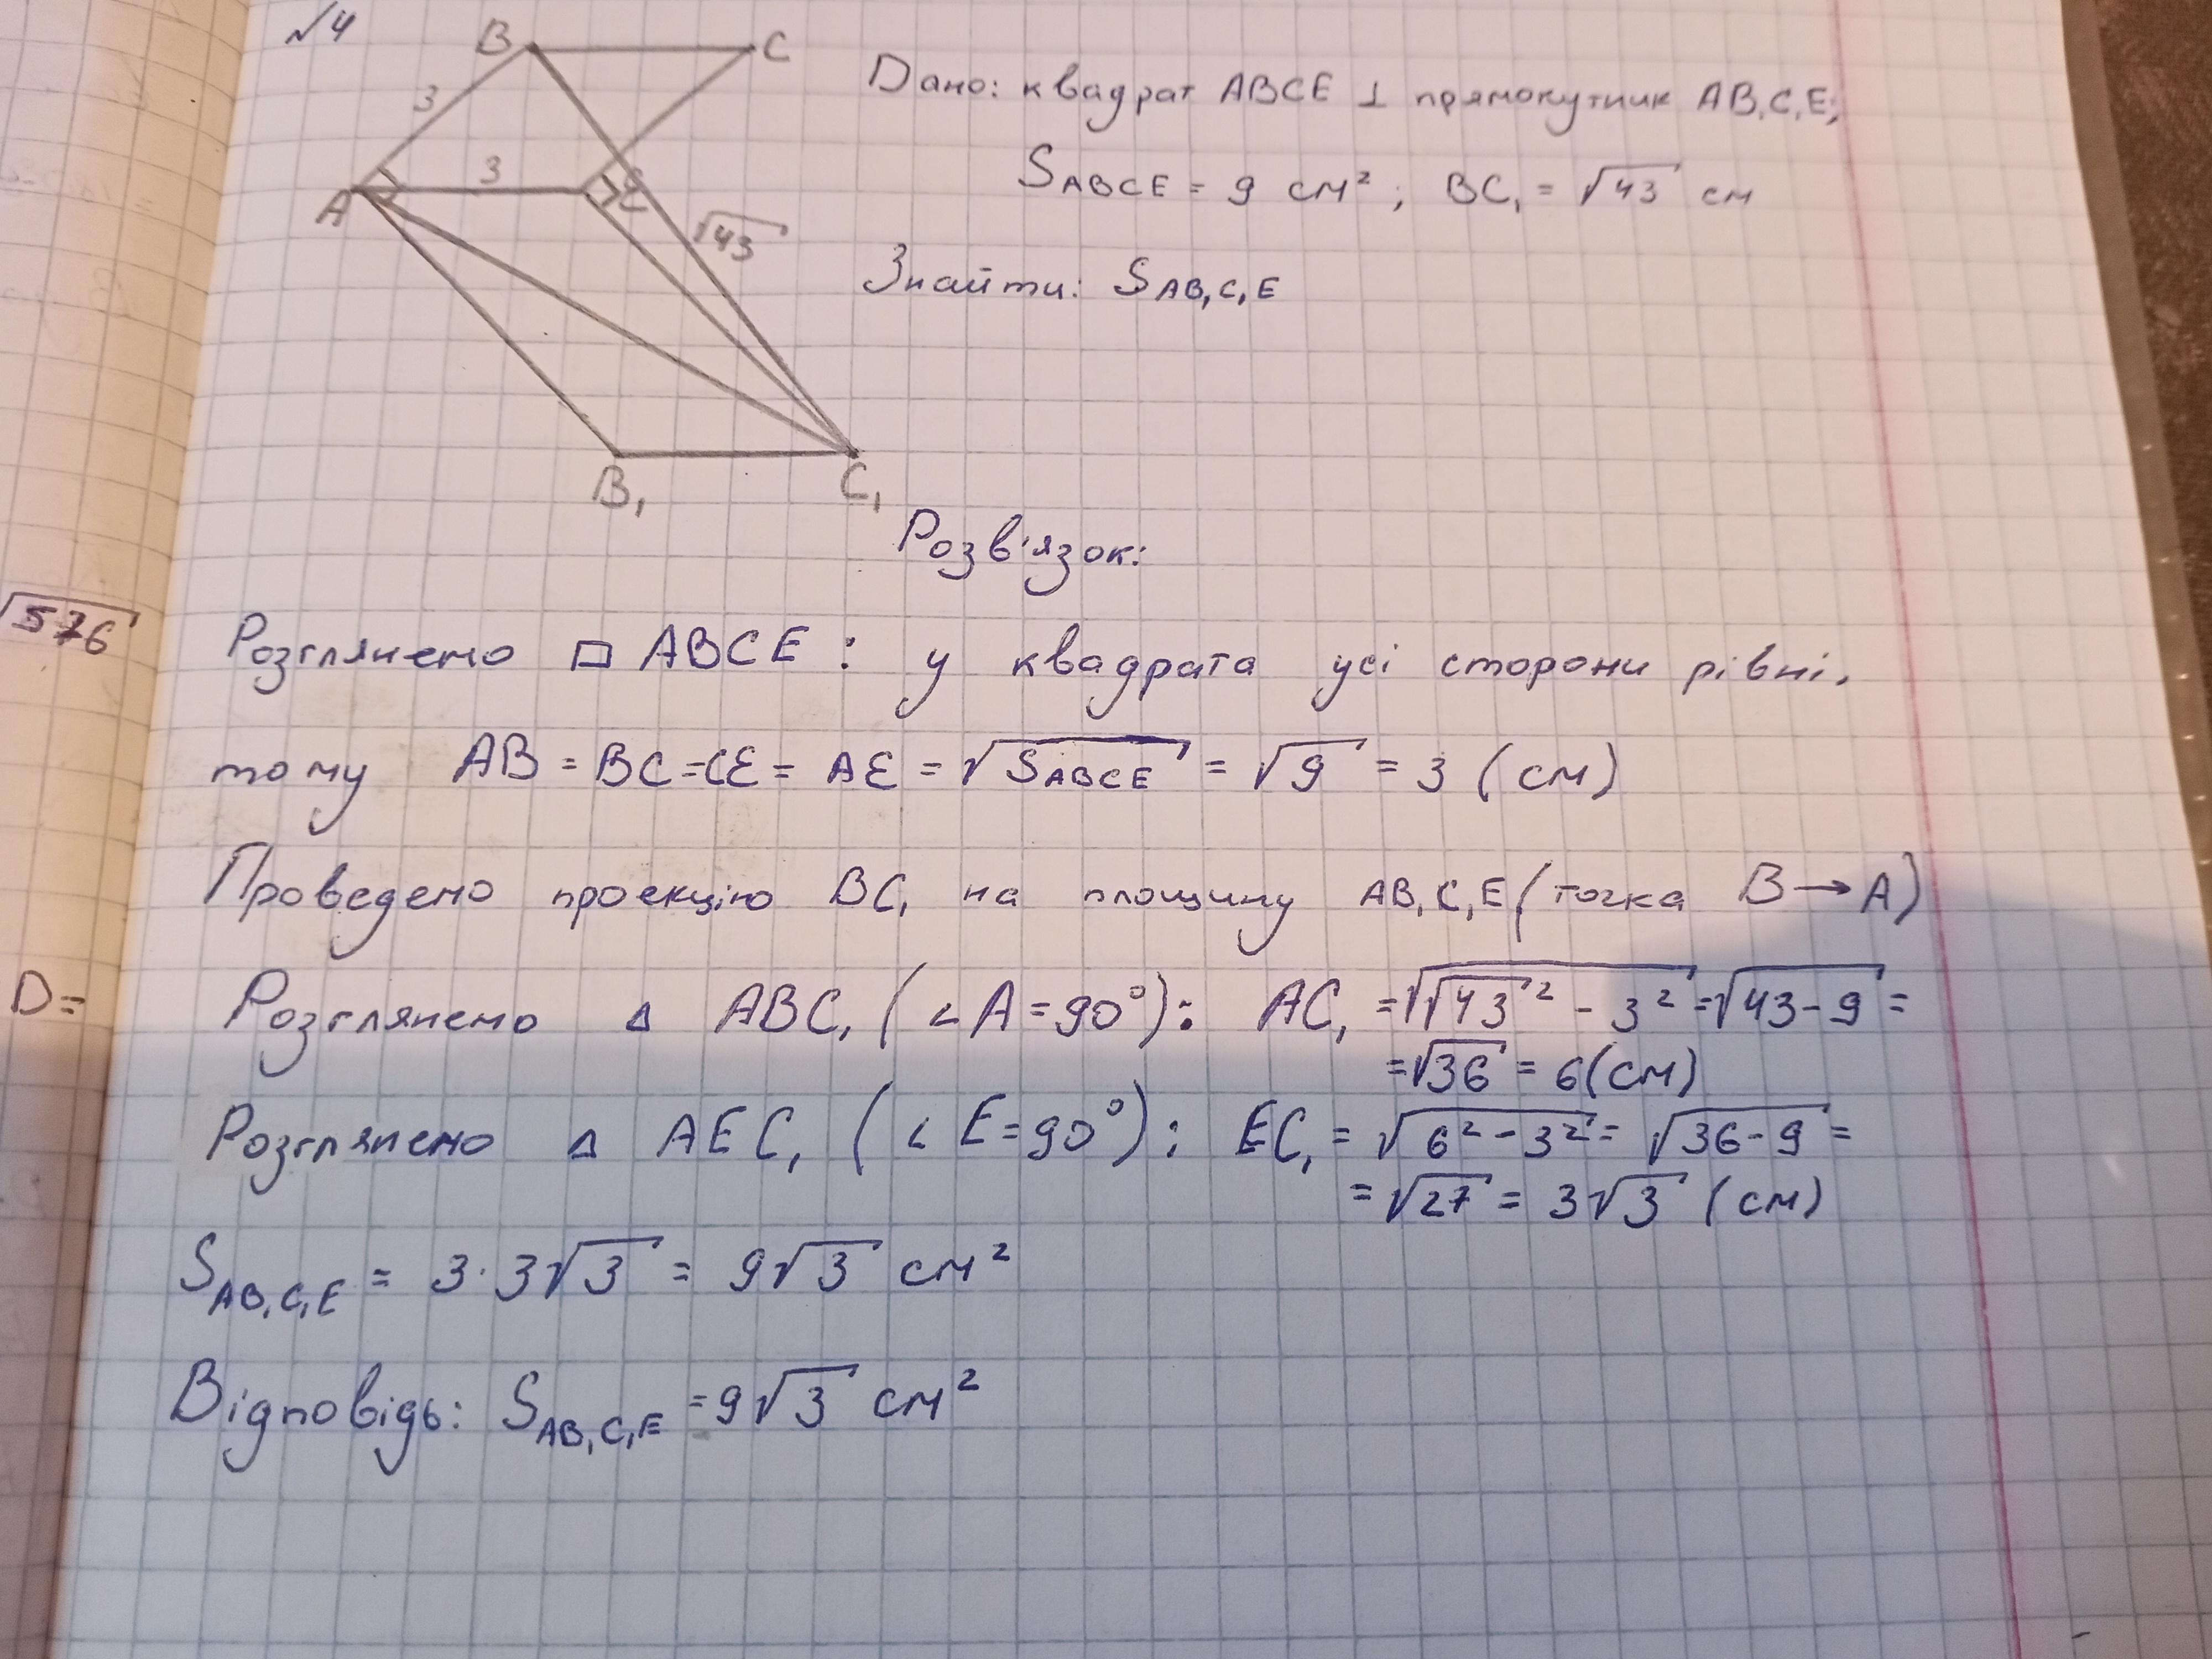 №4
B
C
3
3
A
E
√43
B₁
C₁
Дано: квадрат ABCE ⊥ прямокутник AB₁C₁E;
S ABCE = 9 см²; BC₁ = √43 см
Знайти: S AB₁C₁E
Розв'язок:
√576
Розглянемо □ ABCE: у квадрата усі сторони рівні,
тому AB = BC = CE = AE = √S ABCE = √9 = 3 (см)
Проведемо проекцію BC₁ на площину AB₁C₁E (точка B → A)
D=
Розглянемо △ ABC₁ (∠A = 90°): AC₁ = √(√43² - 3²) = √(43-9) =
= √36 = 6 (см)
Розглянемо △ AEC₁ (∠E = 90°): EC₁ = √(6² - 3²) = √(36-9) =
= √27 = 3√3 (см)
S AB₁C₁E = 3·3√3 = 9√3 см²
Відповідь: S AB₁C₁E = 9√3 см²